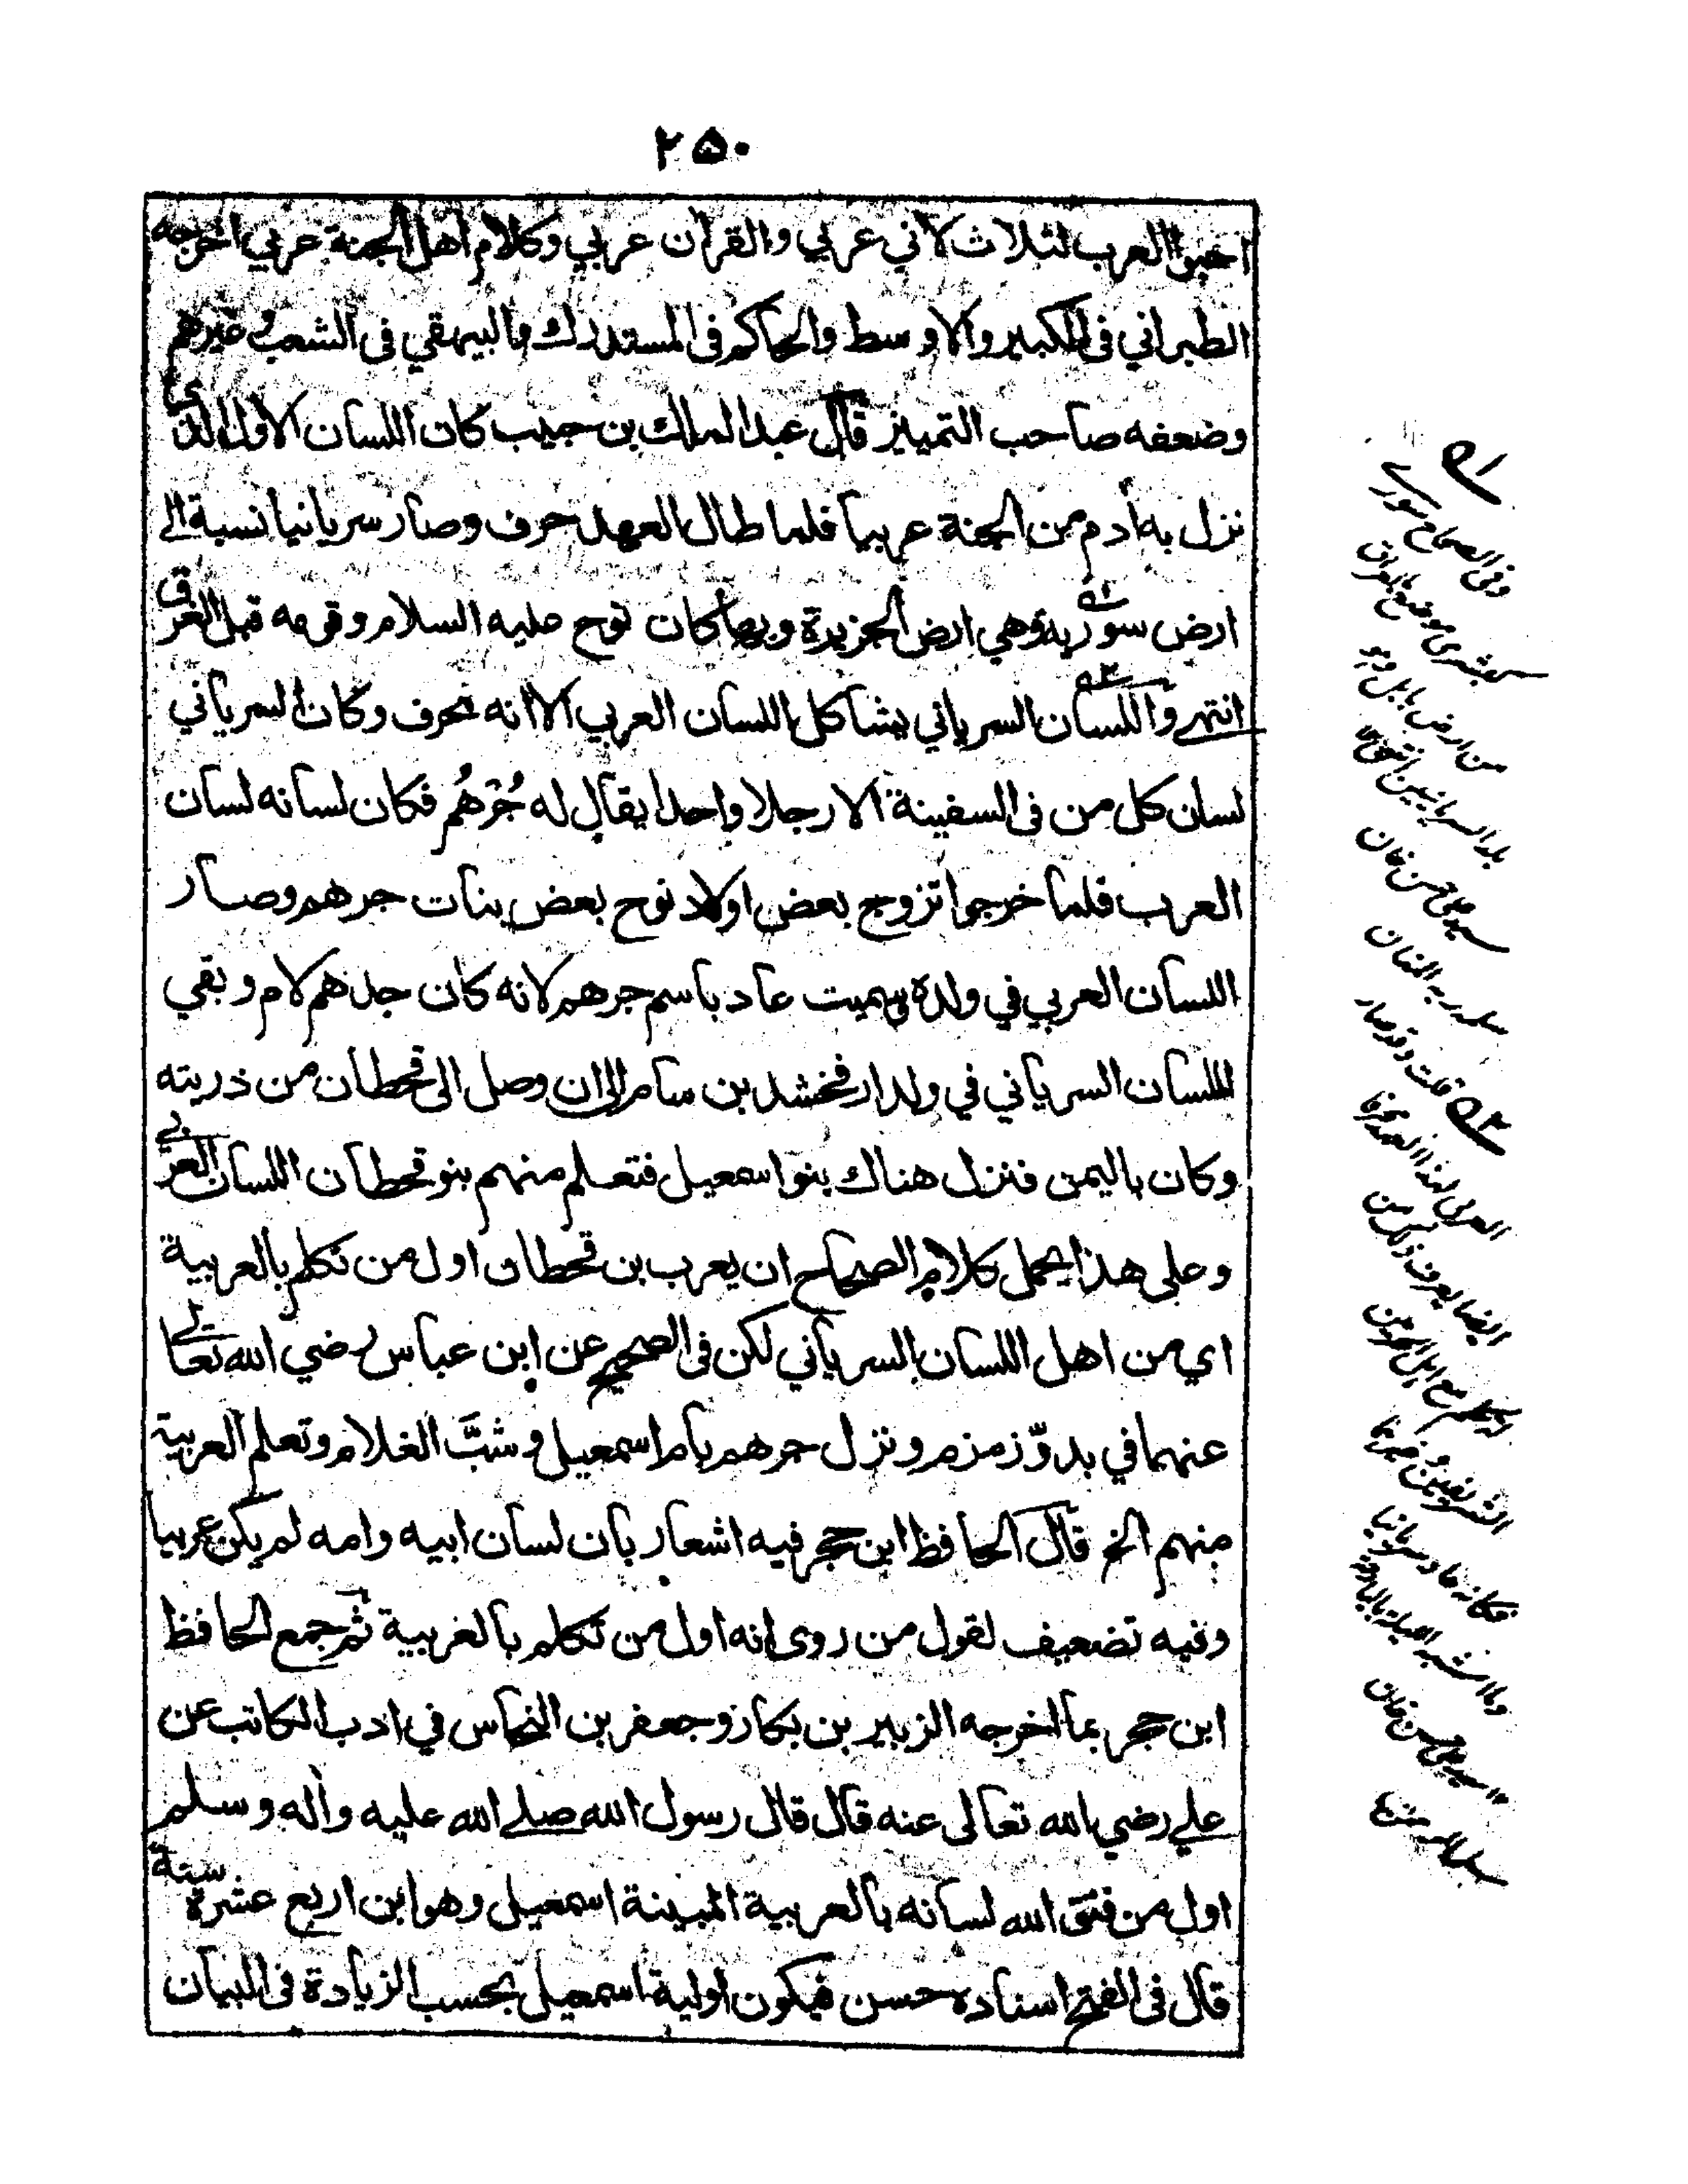 ۲۵۰
احبوا العرب لثلاث لأني عربي والقرآن عربي وكلام أهل الجنة عربي اخرجه
الطبراني في الكبير والاوسط والحاكم في المستدرك والبيهقي في الشعب وغيرهم
وضعفه صاحب التمييز قال عبد الملك بن حبيب كان اللسان الاول الذي
نزل به أدم من الجنة عربيا فلما طال العهد حرف وصار سريانيا نسبة الى
ارض سورية وهي ارض الجزيرة وبها كان نوح عليه السلام وقومه قبل الغرق
انتهى واللسان السرياني يشاكل اللسان العربي الا انه محرف وكان السرياني
لسان كل من في السفينة الا رجلا واحدا يقال له جُرْهُم فكان لسانه لسان
العرب فلما خرجوا تزوج بعض اولاد نوح بعض بنات جرهم وصار
اللسان العربي في ولده وسميت عاد باسم جرهم لانه كان جدهم لام وبقي
اللسان السرياني في ولد ارفخشد بن سام الى ان وصل الى قحطان من ذريته
وكان باليمن فنزل هناك بنو اسمعيل فتعلم منهم بنو قحطان اللسان العربي
وعلى هذا يحمل كلام الصحاح ان يعرب بن قحطان اول من تكلم بالعربية
اي من اهل اللسان السرياني لكن في الصحيح عن ابن عباس رضي الله تعالى
عنهما في بدوّ زمزم ونزل جرهم بام اسمعيل و شبَّ الغلام وتعلم العربية
منهم الخ قال الحافظ ابن حجر فيه اشعار بان لسان ابيه وامه لم يكن عربيا
وفيه تضعيف لقول من روى انه اول من تكلم بالعربية ثم جمع الحافظ
ابن حجر بما اخرجه الزبير بن بكار وجعفر بن النحاس في ادب الكاتب عن
علي رضي الله تعالى عنه قال قال رسول الله صلى الله عليه وأله وسلم
اول من فتق الله لسانه بالعربية المبينة اسمعيل وهو ابن اربع عشرة سنة
قال في الفتح اسناده حسن فيكون اولية اسمعيل بحسب الزيادة في البيان
وفي الصحاح سورى
كبشرى موضع بالعراق
من ارض بابل وهو
بلد السريانيين انتهى
سيد علي حسن خان
سلمه ربه المنان
قلت وقد صار
العربي لهذا العهد محرفا
ايضا يعرف ذلك من
تكلم مع اهل الحرمين
الشريفين وغيرهما
فكانه عاد سريانيا
وما اشبه الليلة بالبارحة
سيد علي حسن خان